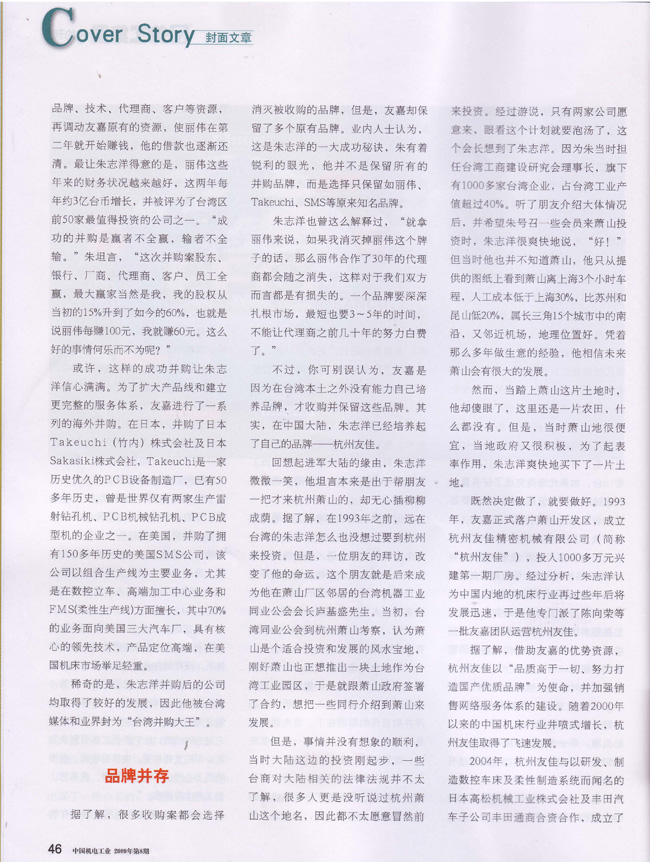 Cover Story 封面文章
品牌、技术、代理商、客户等资源，
再调动友嘉原有的资源，使丽伟在第
二年就开始赚钱，他的借款也逐渐还
清。最让朱志洋得意的是，丽伟这些
年来的财务状况越来越好，这两年每
年约3亿台币增长，并被评为了台湾区
前50家最值得投资的公司之一。“成
功的并购是赢者不全赢，输者不全
输。”朱坦言，“这次并购案股东、
银行、厂商、代理商、客户、员工全
赢，最大赢家当然是我，我的股权从
当初的15%升到了如今的60%，也就是
说丽伟每赚100元，我就赚60元。这么
好的事情何乐而不为呢？”
或许，这样的成功并购让朱志
洋信心满满。为了扩大产品线和建立
更完整的服务体系，友嘉进行了一系
列的海外并购。在日本，并购了日本
Takeuchi（竹内）株式会社及日本
Sakasiki株式会社，Takeuchi是一家
历史优久的PCB设备制造厂，已有50
多年历史，曾是世界仅有两家生产雷
射钻孔机、PCB机械钻孔机、PCB成
型机的企业之一。在美国，并购了拥
有150多年历史的美国SMS公司，该
公司以组合生产线为主要业务，尤其
是在数控立车、高端加工中心业务和
FMS(柔性生产线)方面擅长，其中70%
的业务面向美国三大汽车厂，具有核
心的领先技术，产品定位高端，在美
国机床市场举足轻重。
稀奇的是，朱志洋并购后的公司
均取得了较好的发展，因此他被台湾
媒体和业界封为“台湾并购大王”。
品牌并存
据了解，很多收购案都会选择
消灭被收购的品牌，但是，友嘉却保
留了多个原有品牌。业内人士认为，
这是朱志洋的一大成功秘诀，朱有着
锐利的眼光，他并不是保留所有的
并购品牌，而是选择只保留如丽伟、
Takeuchi、SMS等原来知名品牌。
朱志洋也曾这么解释过，“就拿
丽伟来说，如果我消灭掉丽伟这个牌
子的话，那么丽伟合作了30年的代理
商都会随之消失，这样对于我们双方
而言都是有损失的。一个品牌要深深
扎根市场，最短也要3～5年的时间，
不能让代理商之前几十年的努力白费
了。”
不过，你可别误认为，友嘉是
因为在台湾本土之外没有能力自己培
养品牌，才收购并保留这些品牌。其
实，在中国大陆，朱志洋已经培养起
了自己的品牌——杭州友佳。
回想起进军大陆的缘由，朱志洋
微微一笑，他坦言本来是出于帮朋友
一把才来杭州萧山的，却无心插柳柳
成荫。据了解，在1993年之前，远在
台湾的朱志洋怎么也没想过要到杭州
来投资。但是，一位朋友的拜访，改
变了他的命运。这个朋友就是后来成
为他在萧山厂区邻居的台湾机器工业
同业公会会长庐基盛先生。当初，台
湾同业公会到杭州萧山考察，认为萧
山是个适合投资和发展的风水宝地，
刚好萧山也正想推出一块土地作为台
湾工业园区，于是就跟萧山政府签署
了合约，想把一些同行介绍到萧山来
发展。
但是，事情并没有想象的顺利，
当时大陆这边的投资刚起步，一些
台商对大陆相关的法律法规并不太
了解，很多人更是没听说过杭州萧
山这个地名，因此都不太愿意冒然前
来投资。经过游说，只有两家公司愿
意来，眼看这个计划就要泡汤了，这
个会长想到了朱志洋。因为朱当时担
任台湾工商建设研究会理事长，旗下
有1000多家台湾企业，占台湾工业产
值超过40%。听了朋友介绍大体情况
后，并希望朱号召一些会员来萧山投
资时，朱志洋很爽快地说，“好！”
但当时他也并不知道萧山，他只从提
供的图纸上看到萧山离上海3个小时车
程，人工成本低于上海30%，比苏州和
昆山低20%，属长三角15个城市中的南
沿，又邻近机场，地理位置好。凭着
那么多年做生意的经验，他相信未来
萧山会有很大的发展。
然而，当踏上萧山这片土地时，
他却傻眼了，这里还是一片农田，什
么都没有。但是，当时萧山地很便
宜，当地政府又很积极，为了起表
率作用，朱志洋爽快地买下了一片土
地。
既然决定做了，就要做好。1993
年，友嘉正式落户萧山开发区，成立
杭州友佳精密机械有限公司（简称
“杭州友佳”），投入1000多万元兴
建第一期厂房。经过分析，朱志洋认
为中国内地的机床行业再过些年后将
发展迅速，于是他专门派了陈向荣等
一批友嘉团队运营杭州友佳。
据了解，借助友嘉的优势资源，
杭州友佳以“品质高于一切、努力打
造国产优质品牌”为使命，并加强销
售网络服务体系的建设。随着2000年
以来的中国机床行业井喷式增长，杭
州友佳取得了飞速发展。
2004年，杭州友佳与以研发、制
造数控车床及柔性制造系统而闻名的
日本高松机械工业株式会社及丰田汽
车子公司丰田通商合资合作，成立了
46 中国机电工业 2009年第8期